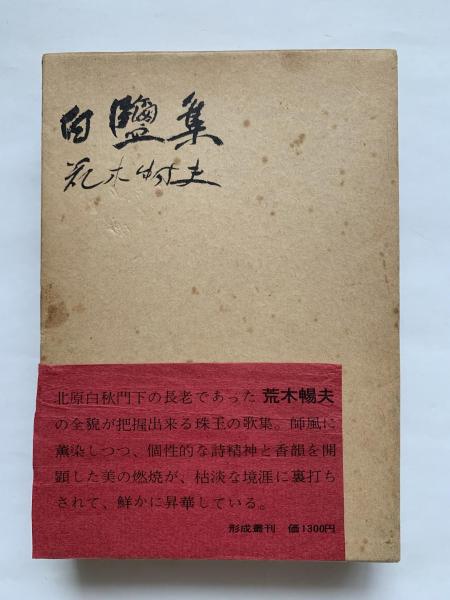 白鹽集
荒木暢夫
北原白秋門下の長老であった 荒木暢夫
の全貌が把握出来る珠玉の歌集。師風に
薫染しつつ、個性的な詩精神と香韻を開
顕した美の燃焼が、枯淡な境涯に裏打ち
されて、鮮かに昇華している。
形成叢刊 価1300円